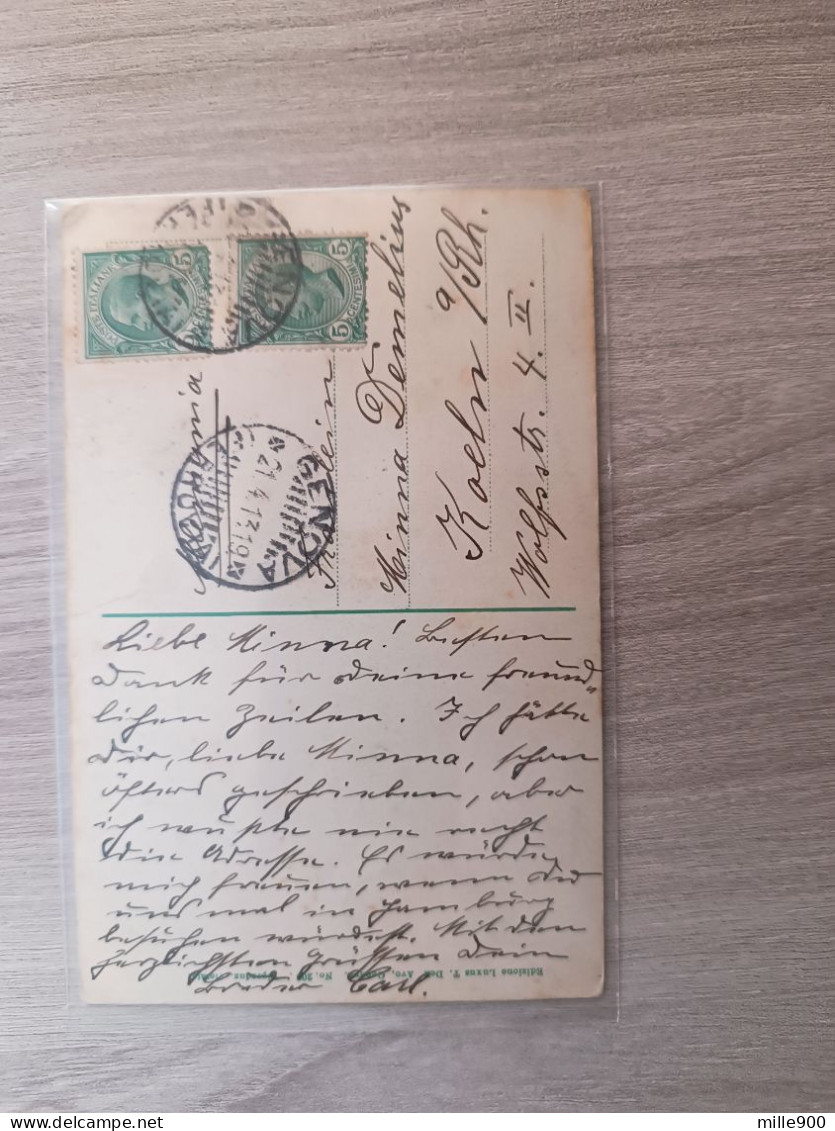 Liebe Minna! Besten
Dank für Deine freund-
lichen Zeilen. Ich hätte
Dir, liebe Minna, schon
öfters geschrieben, aber
ich wußte nie recht
die Adresse. Es würde
mich freuen, wenn Du
uns mal in Hamburg
besuchen würdest. Mit den
herzlichsten Grüßen Dein
Bruder Carl.
POSTE ITALIANE
CENTESIMI 5
CENTESIMI 5
GENOVA
21.4.13.19
Fräulein
Minna Demelius
Koeln a/Rh.
Wolfsstr. 4. II.
Edizione Luxus
delcampe.net
mille900